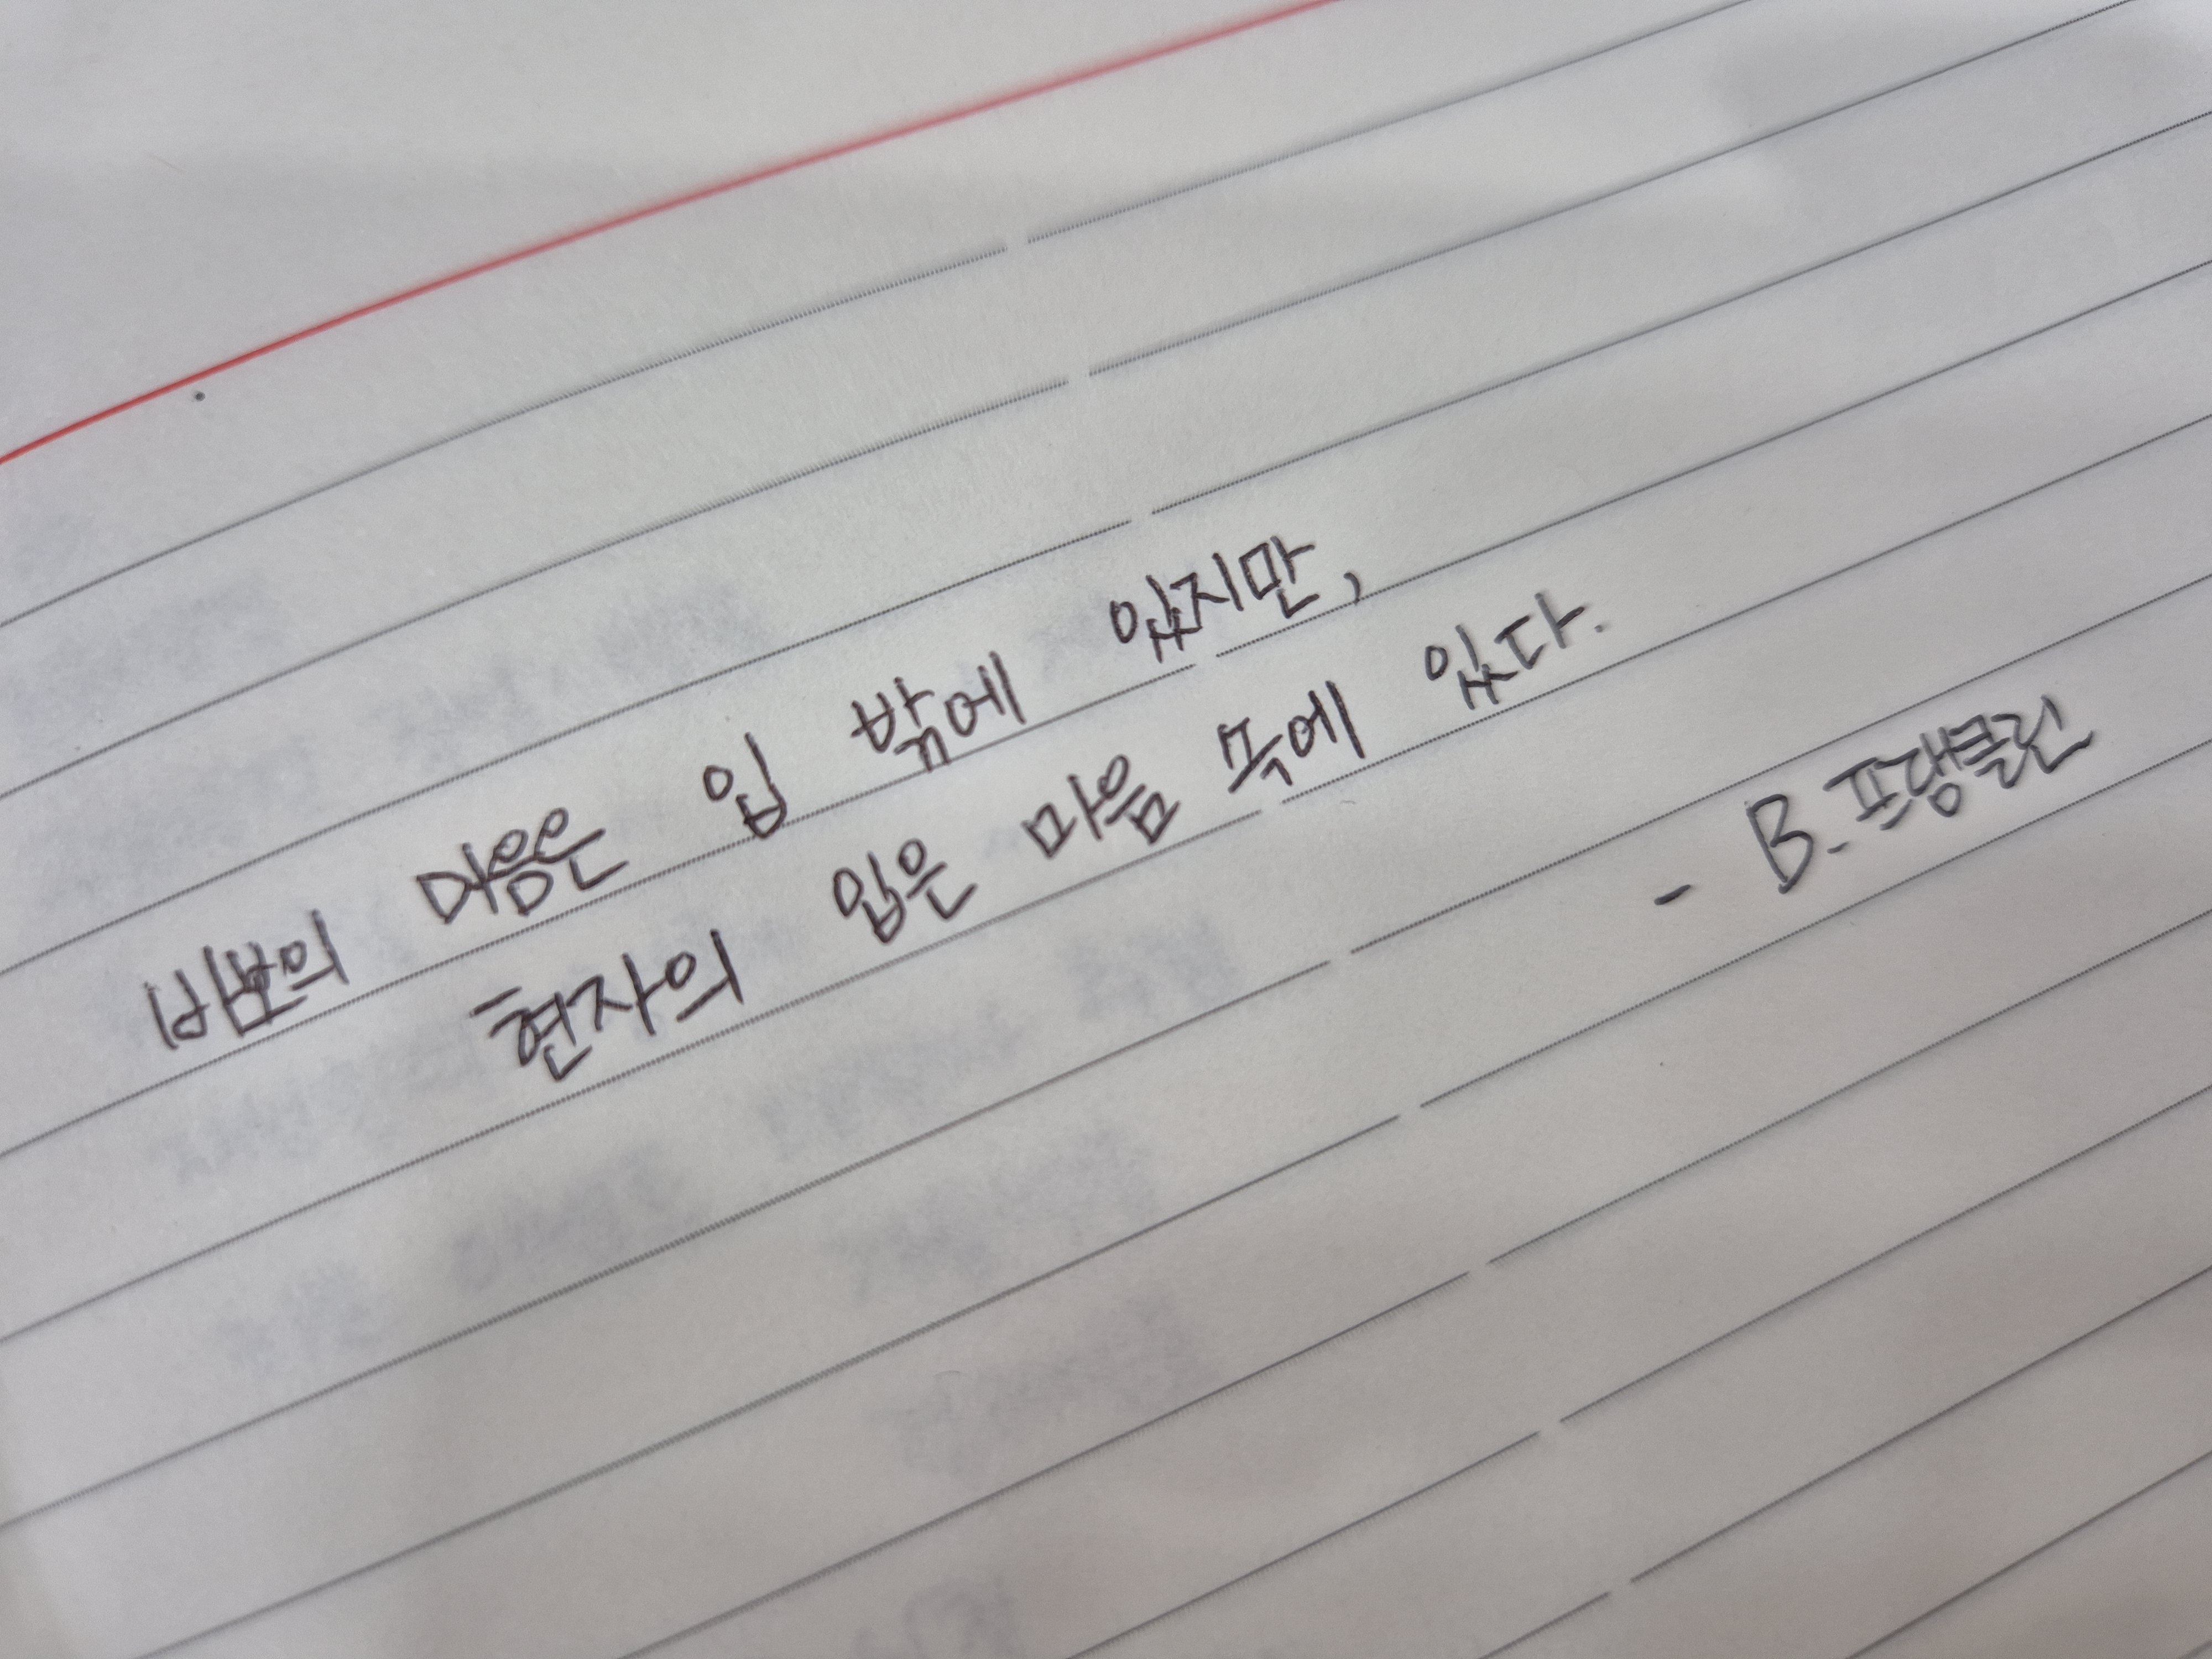 바보의 마음은 입 밖에 있지만,
현자의 입은 마음 속에 있다.
- B. 프랭클린